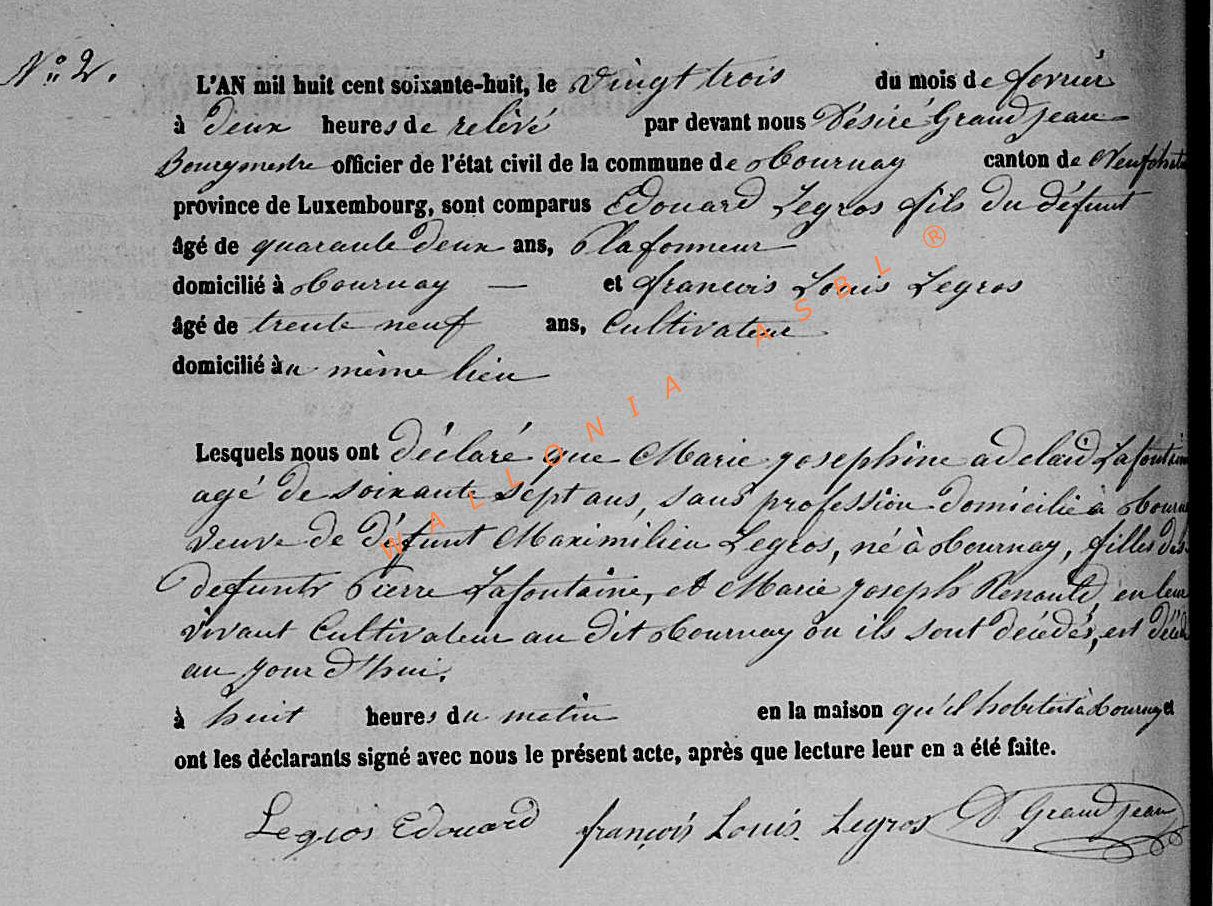 N° 2.
L'AN mil huit cent soixante-huit, le vingt trois du mois de fevrier
à deux heures de relevé par devant nous Désiré Grandjean
Bourgmestre officier de l'état civil de la commune de Tournay canton de Neufchateau
province de Luxembourg, sont comparus Edouard Legros fils du défunt
âgé de quarante deux ans, Plafonneur
domicilié à Tournay — et françois Louis Legros
âgé de trente neuf ans, Cultivateur
domicilié au même lieu
Lesquels nous ont déclaré que Marie josephine adelaid Lafontaine
agé de soixante sept ans, sans profession domicilié à Tournay
Veuve de défunt Maximilien Legros, né à Tournay, filles des
defunts Pierre Lafontaine, et Marie joseph Renauld en leur
vivant Cultivateur au dit Tournay ou ils sont décédés, est décédé
au jour d'hui.
à huit heures du matin en la maison qu'il habitait à Tournay et
ont les déclarants signé avec nous le présent acte, après que lecture leur en a été faite.
Legros Edouard françois Louis Legros D. Grandjean
WALLONIA ASBL ®